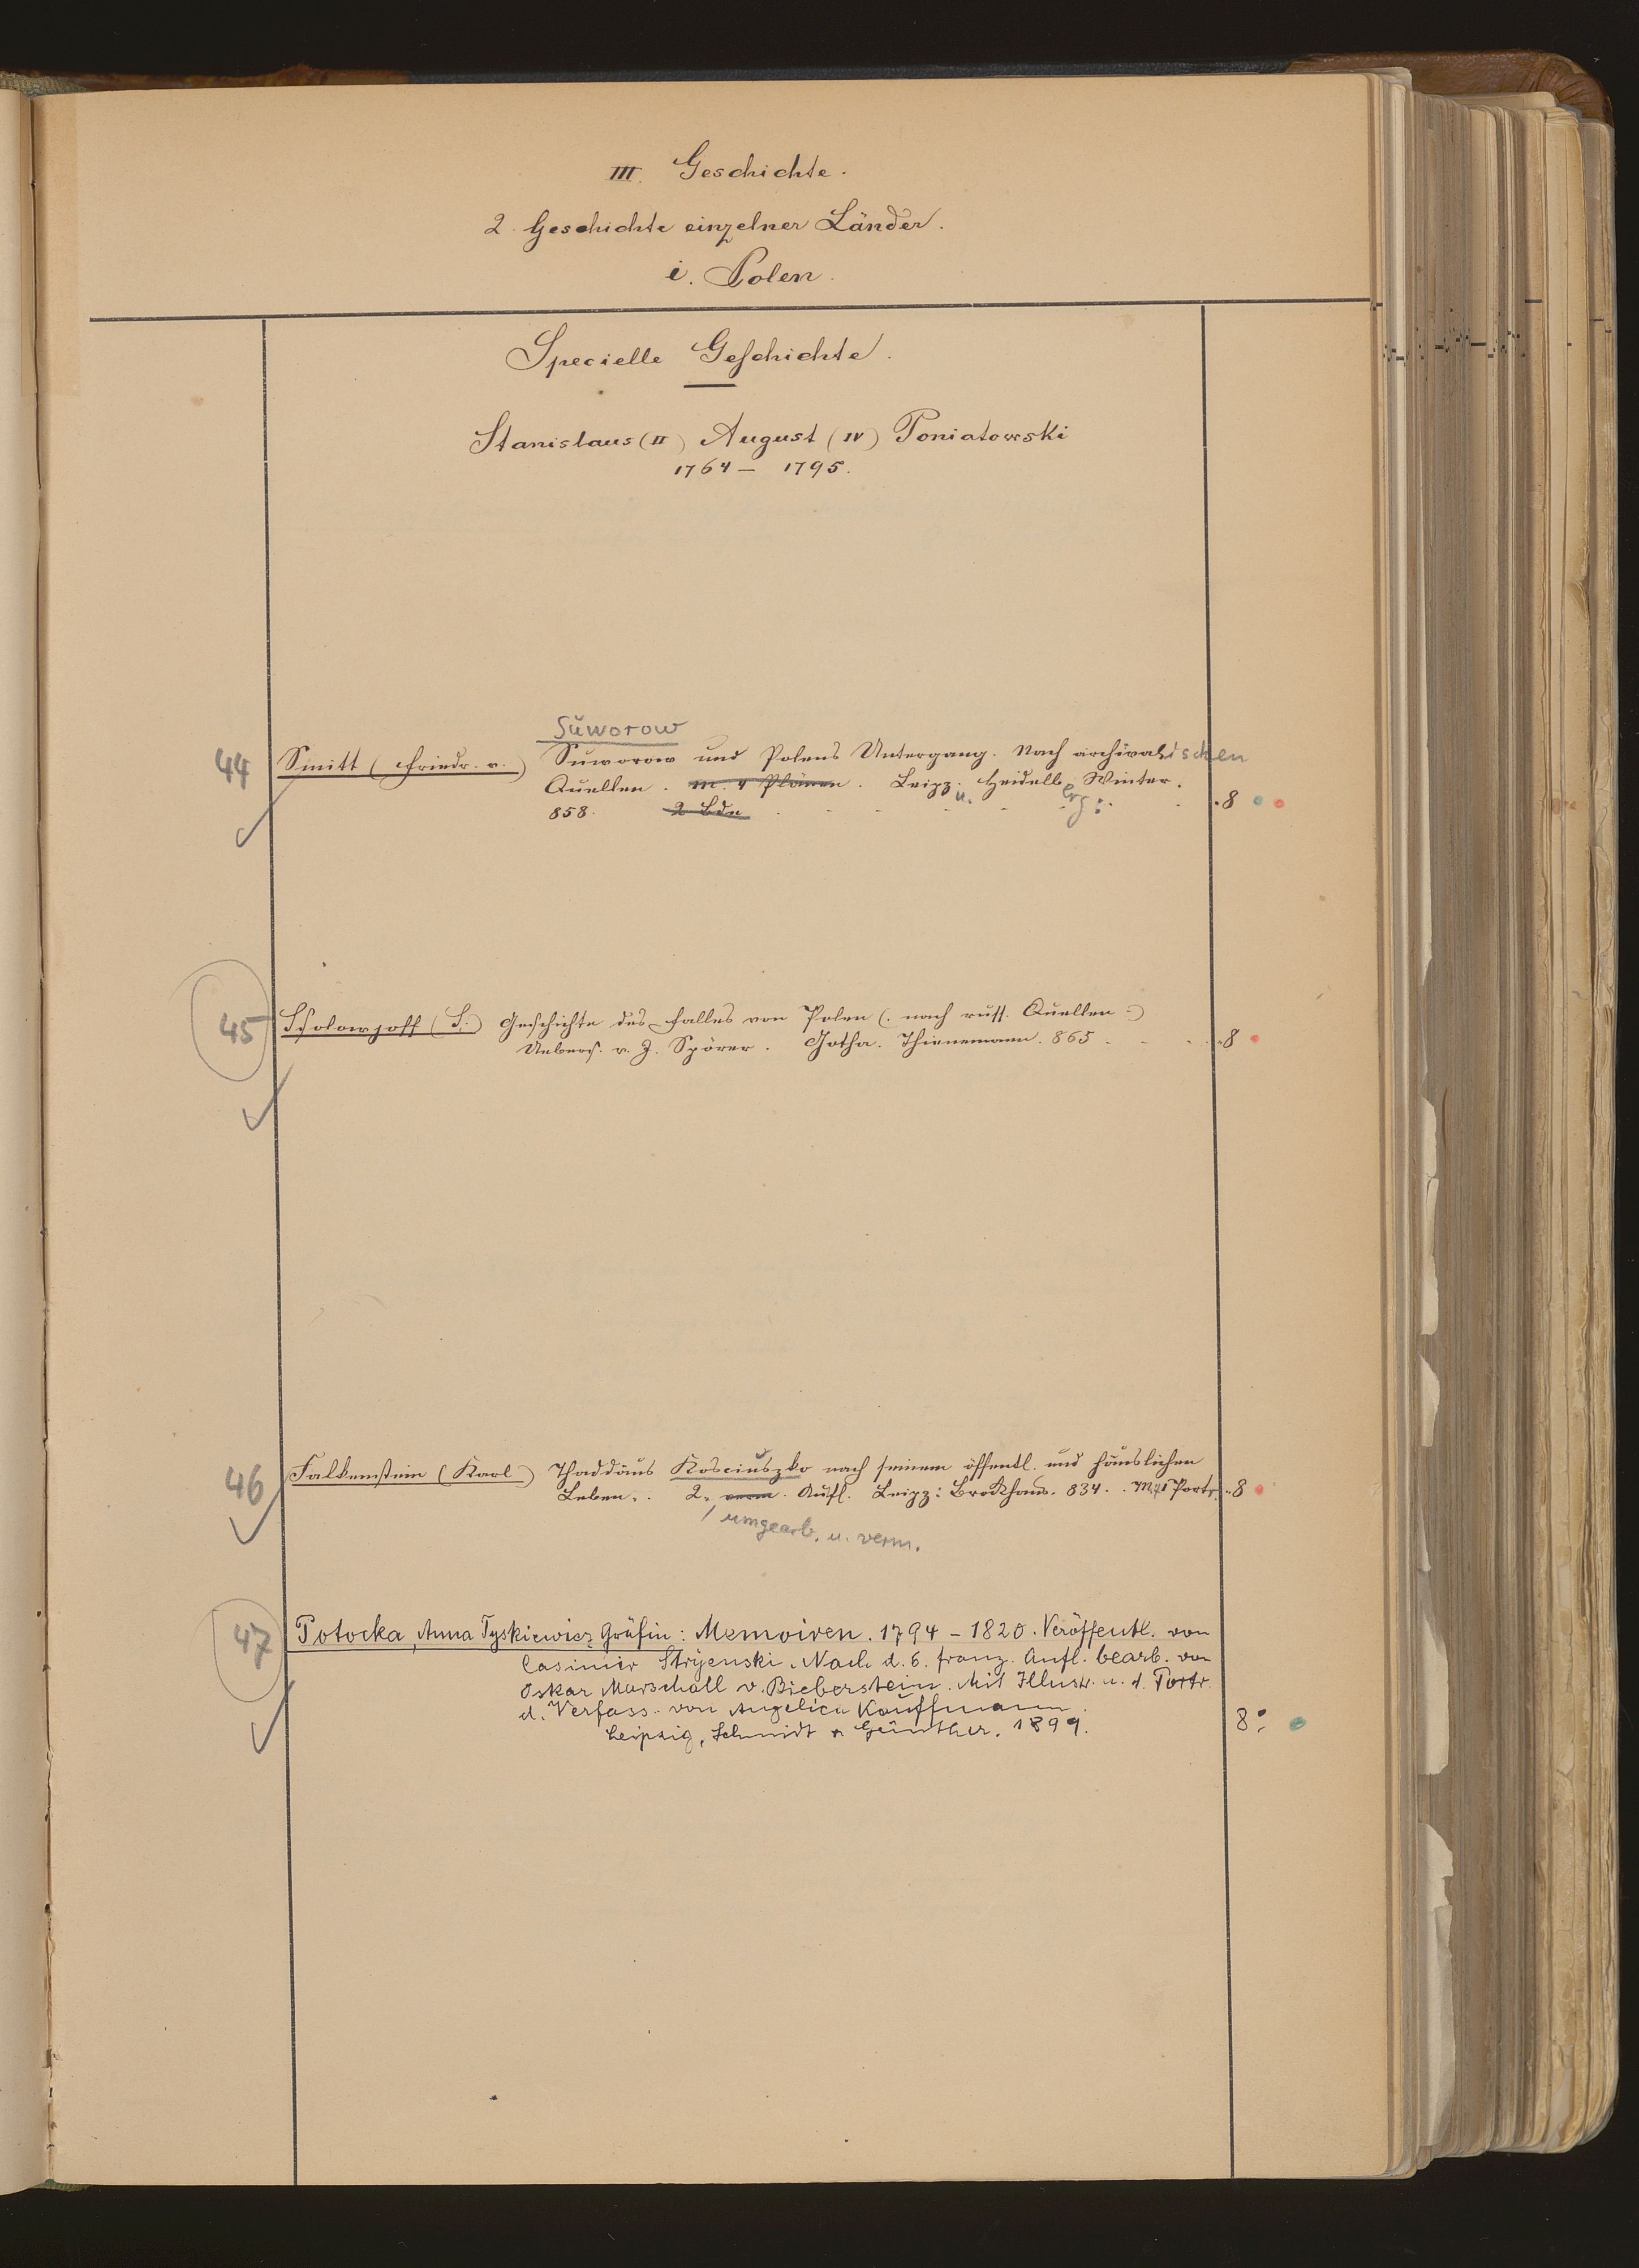 III. Geschichte.
2. Geschichte einzelner Länder.
i. Polen.
Specielle Geschichte.
Stanislaus (II) August (IV) Poniatowski
1764 – 1795.
Suworow
44 Smitt (Friedr. v.) Suworow und Polens Untergang. Nach archivalischen
Quellen. m. 4 Plänen. Leipz. u. Heidelberg: Winter.
858. 2 Bde . 8
45 Ssolowjoff (S.) Geschichte des Falles von Polen (: nach russ. Quellen :)
Uebers. v. J. Spörer. Gotha. Thienemann. 865 . 8
46 Falkenstein (Karl) Thaddäus Kosciuszko nach seinem öffentl. und häuslichen
Leben. 2. verm. Aufl. Leipz: Brockhaus. 834. M. 1 Portr. 8
umgearb. u. verm.
47 Potocka, Anna Tyskiewicz Gräfin: Memoiren. 1794 – 1820. Veröffentl. von
Casimir Stryenski. Nach d. 6. franz. Aufl. bearb. von
Oskar Marschall v. Bieberstein. Mit Illustr. u. d. Portr.
d. Verfass. von Angelica Kauffmann.
Leipzig, Schmidt & Günther. 1899. 8°.